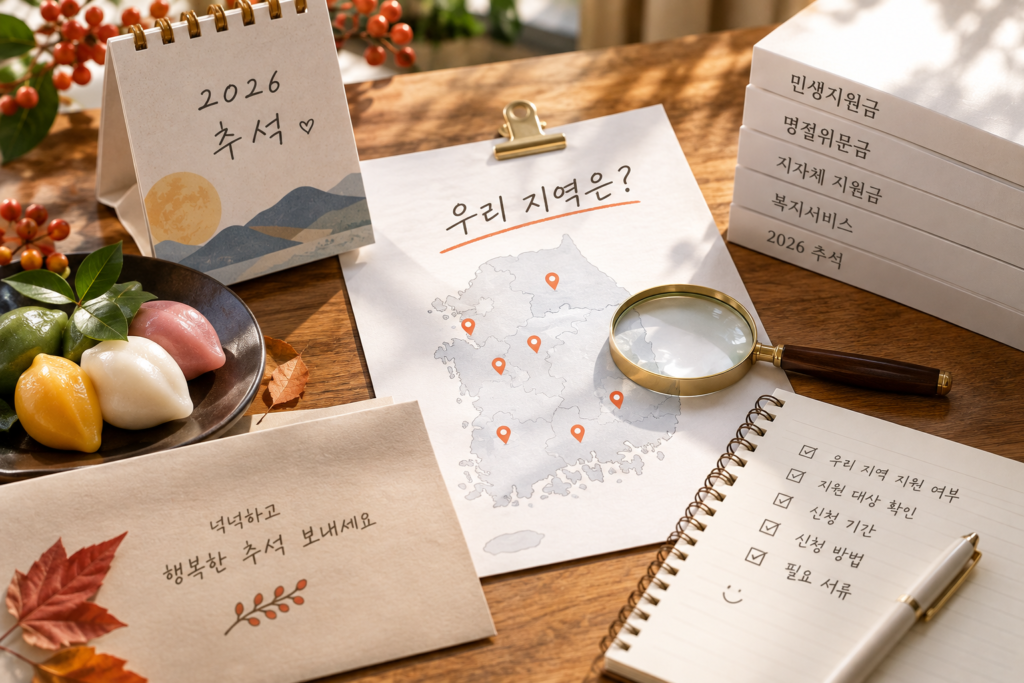 2026
추석 ♡
우리 지역은?
민생지원금
명절위문금
지자체 지원금
복지서비스
2026 추석
넉넉하고
행복한 추석 보내세요
☑ 우리 지역 지원 여부
☑ 지원 대상 확인
☑ 신청 기간
☑ 신청 방법
☑ 필요 서류